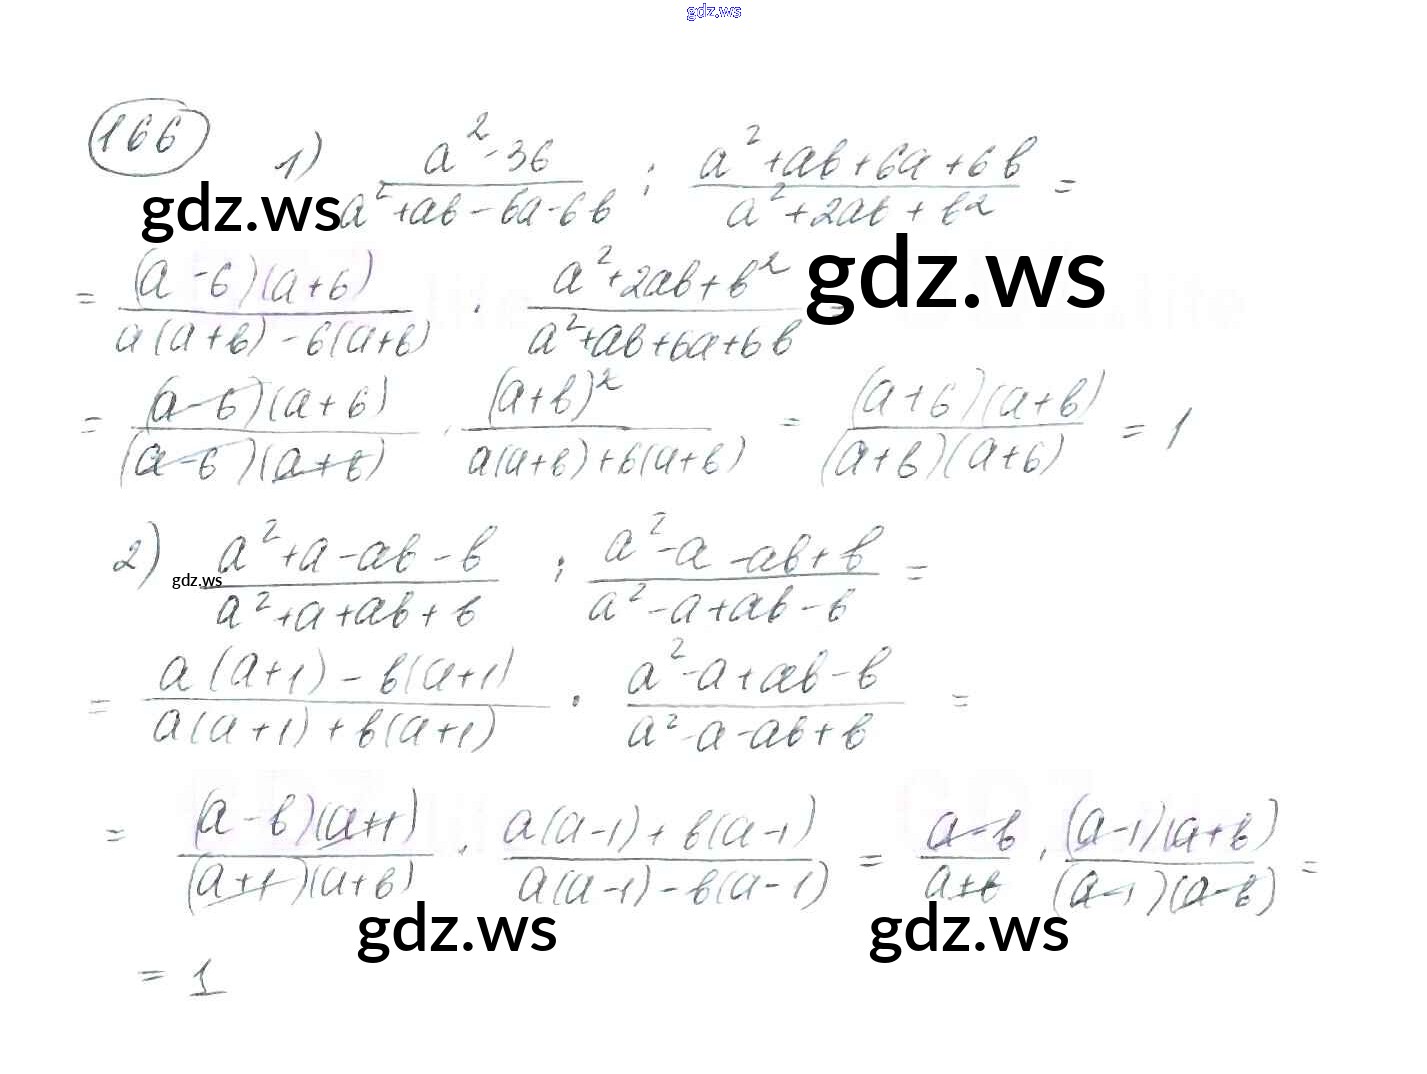 gdz.ws
166
1) (a² - 36)/(a² + ab - 6a - 6b) : (a² + ab + 6a + 6b)/(a² + 2ab + b²) =
gdz.ws
= ((a - 6)(a + 6))/(a(a + b) - 6(a + b)) · (a² + 2ab + b²)/(a² + ab + 6a + 6b) =
gdz.ws
= ((a - 6)(a + 6))/((a - 6)(a + b)) · (a + b)²/(a(a + b) + 6(a + b)) = ((a + 6)(a + b))/((a + b)(a + 6)) = 1
2) (a² + a - ab - b)/(a² + a + ab + b) : (a² - a - ab + b)/(a² - a + ab - b) =
gdz.ws
= (a(a + 1) - b(a + 1))/(a(a + 1) + b(a + 1)) · (a² - a + ab - b)/(a² - a - ab + b) =
= ((a - b)(a + 1))/((a + 1)(a + b)) · (a(a - 1) + b(a - 1))/(a(a - 1) - b(a - 1)) = (a - b)/(a + b) · ((a - 1)(a + b))/((a - 1)(a - b)) =
gdz.ws gdz.ws
= 1